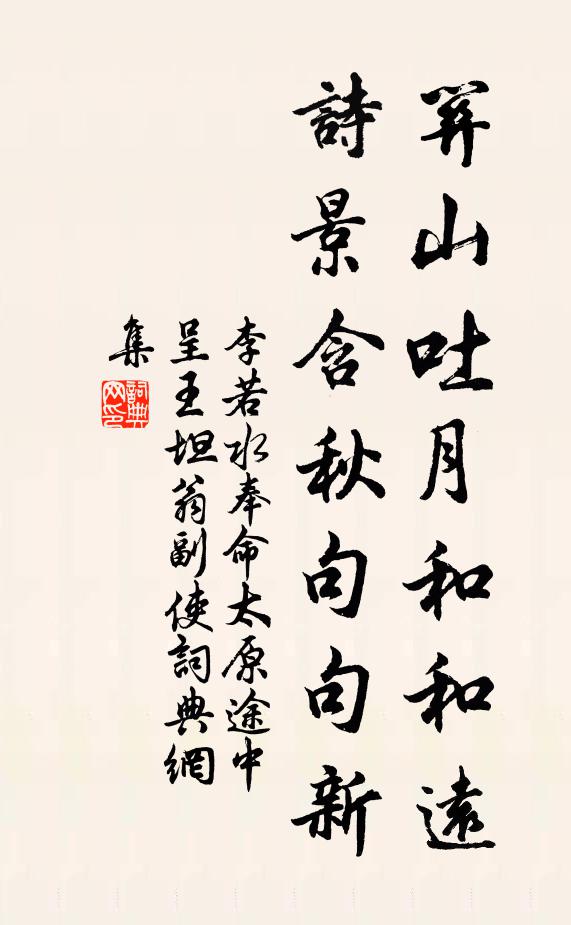 关山吐月和和遠
詩景含秋句句新
李若水奉命太原途中
呈王坦翁副使詞典網
集
詞典网印